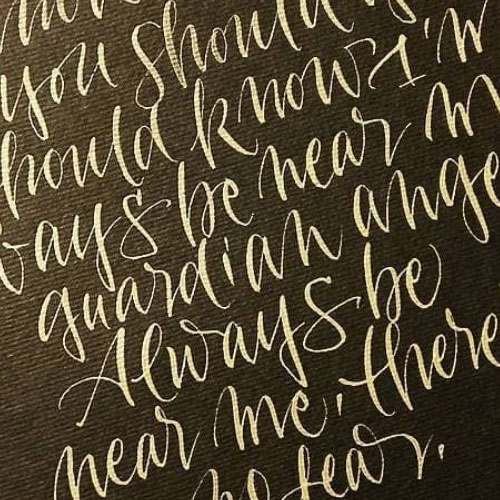 you should
should know I'w
ways be near m
guardian ange
Always be
near me, there
no fear.